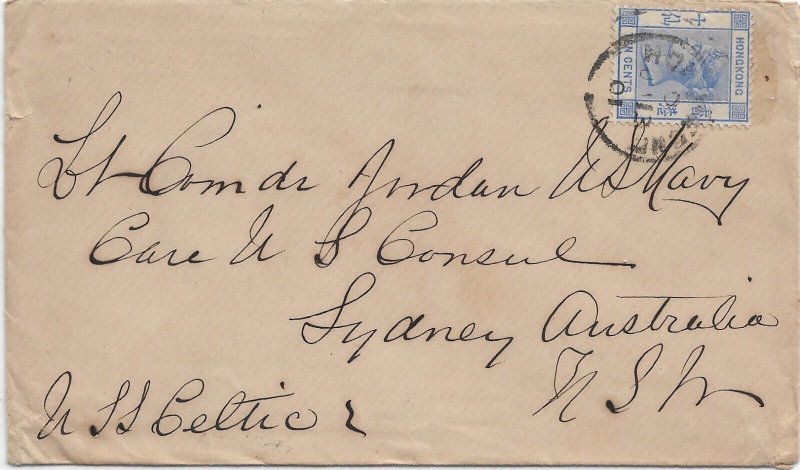 十仙
HONGKONG
TEN CENTS
香港
Lt Comdr Jordan U S Navy
Care U S Consul
Sydney Australia
N S W
U S S Celtic